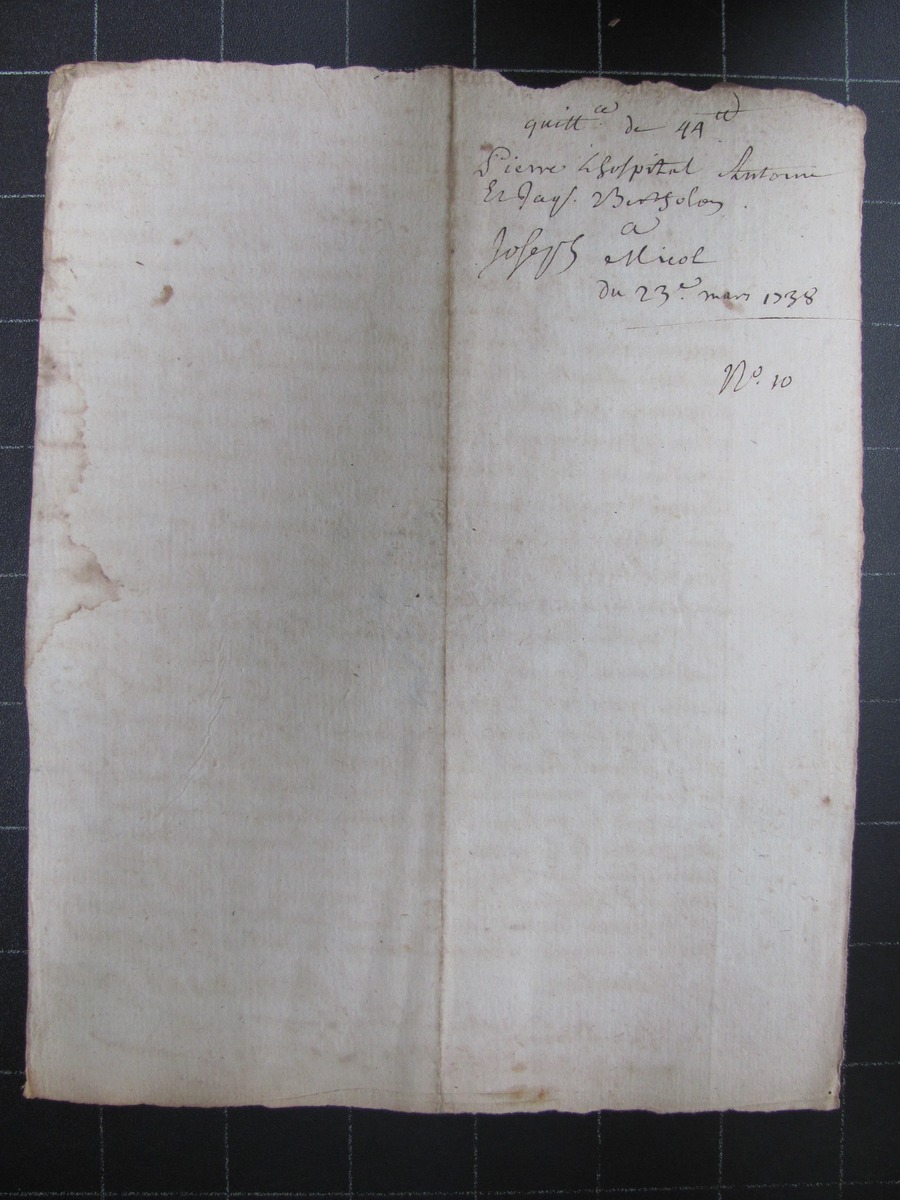 quitt.ce de 44 tt
Pierre Lhospital Antoine
Et Jaq.s Bertholon
a
Joseph Nicol
du 23.e mars 1738
No. 10